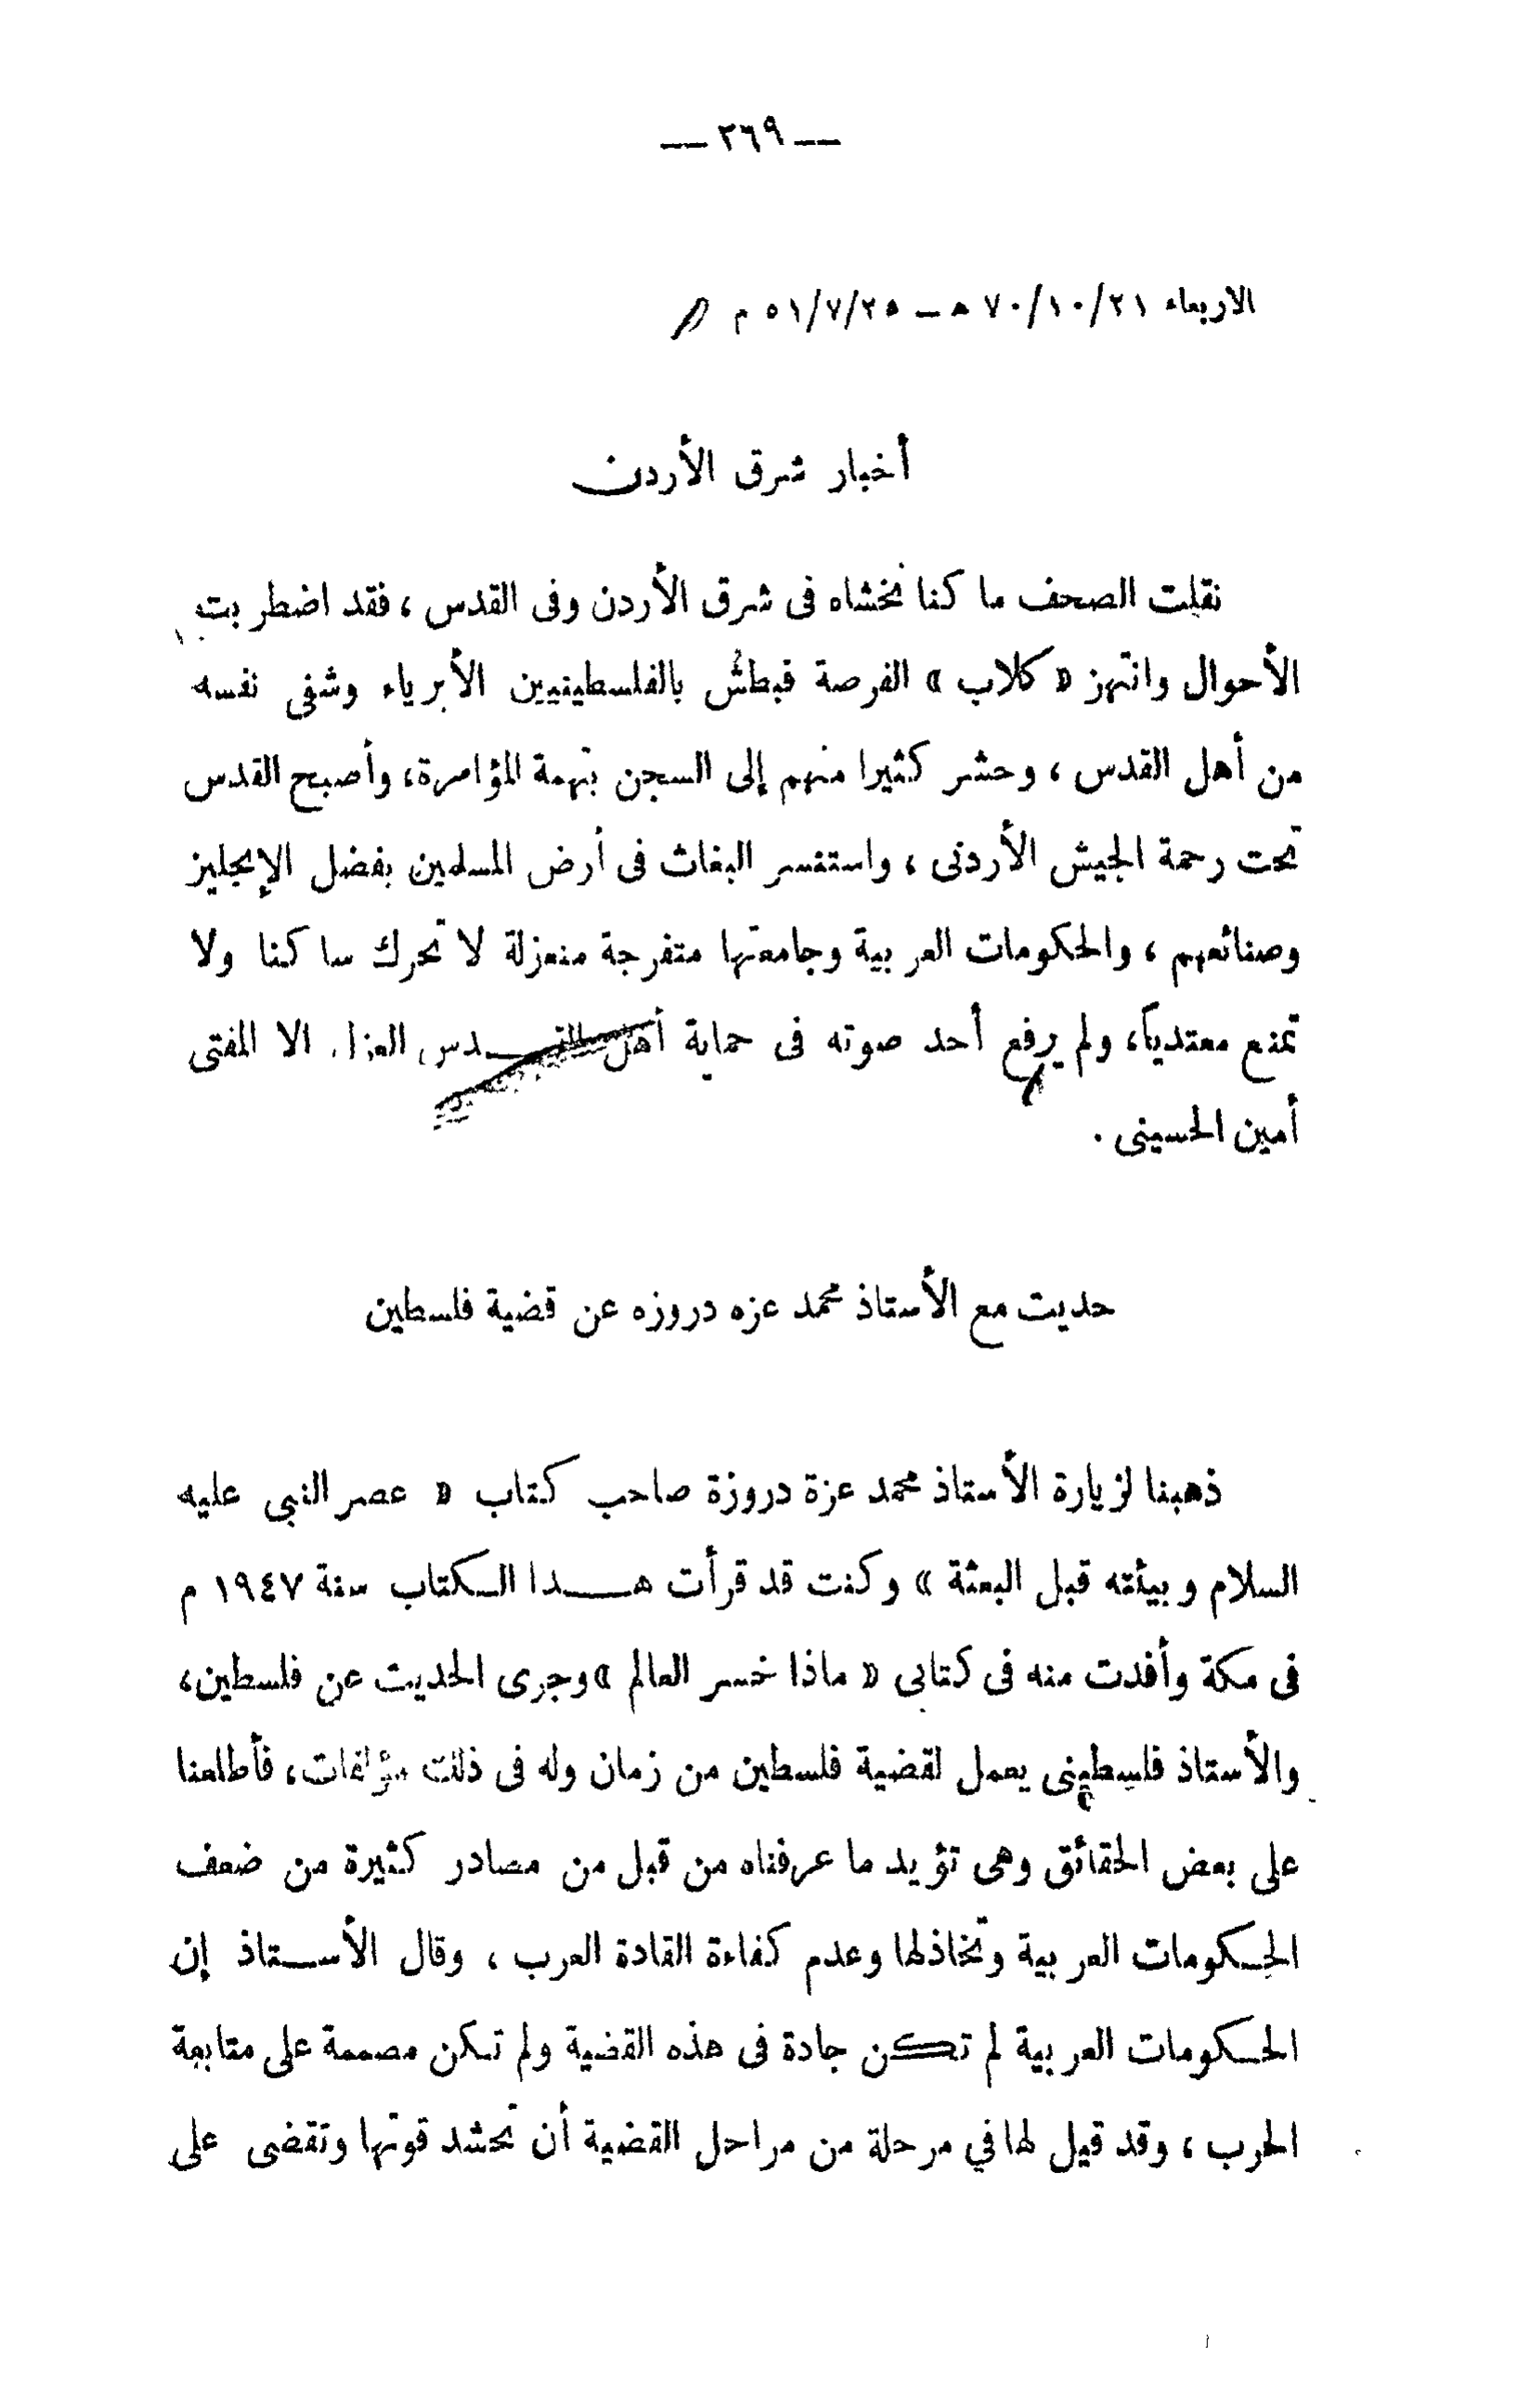 — ٢٦٩ —
الاربعاء ٧٠/١٠/٢١ هـ — ٥١/٧/٢٥ م
أخبار شرق الأردن
نقلت الصحف ما كنا نخشاه فى شرق الأردن وفى القدس ، فقد اضطربت
الأحوال وانتهز « كلاب » الفرصة فبطش بالفلسطينيين الأبرياء وشفى نفسه
من أهل القدس ، وحشر كثيرا منهم إلى السجن بتهمة المؤامرة، وأصبح القدس
تحت رحمة الجيش الأردنى ، واستنسر البغاث فى أرض المسلمين بفضل الإنجليز
وصنائعهم ، والحكومات العربية وجامعتها متفرجة منعزلة لا تحرك ساكنا ولا
تمنع معتدياً، ولم يرفع أحد صوته فى حماية أهل القدس العزل الا المفتى
أمين الحسينى .
حديث مع الأستاذ محمد عزه دروزه عن قضية فلسطين
ذهبنا لزيارة الأستاذ محمد عزة دروزة صاحب كتاب « عصر النبى عليه
السلام وبيئته قبل البعثة » وكنت قد قرأت هذا الكتاب سنة ١٩٤٧ م
فى مكة وأفدت منه فى كتابى « ماذا خسر العالم » وجرى الحديث عن فلسطين،
والأستاذ فلسطينى يعمل لقضية فلسطين من زمان وله فى ذلك مؤلفات، فأطلعنا
على بعض الحقائق وهى تؤيد ما عرفناه من قبل من مصادر كثيرة من ضعف
الحكومات العربية وتخاذلها وعدم كفاءة القادة العرب ، وقال الأستاذ إن
الحكومات العربية لم تكن جادة فى هذه القضية ولم تكن مصممة على متابعة
الحرب ، وقد قيل لها في مرحلة من مراحل القضية أن تحشد قوتها وتقضى على